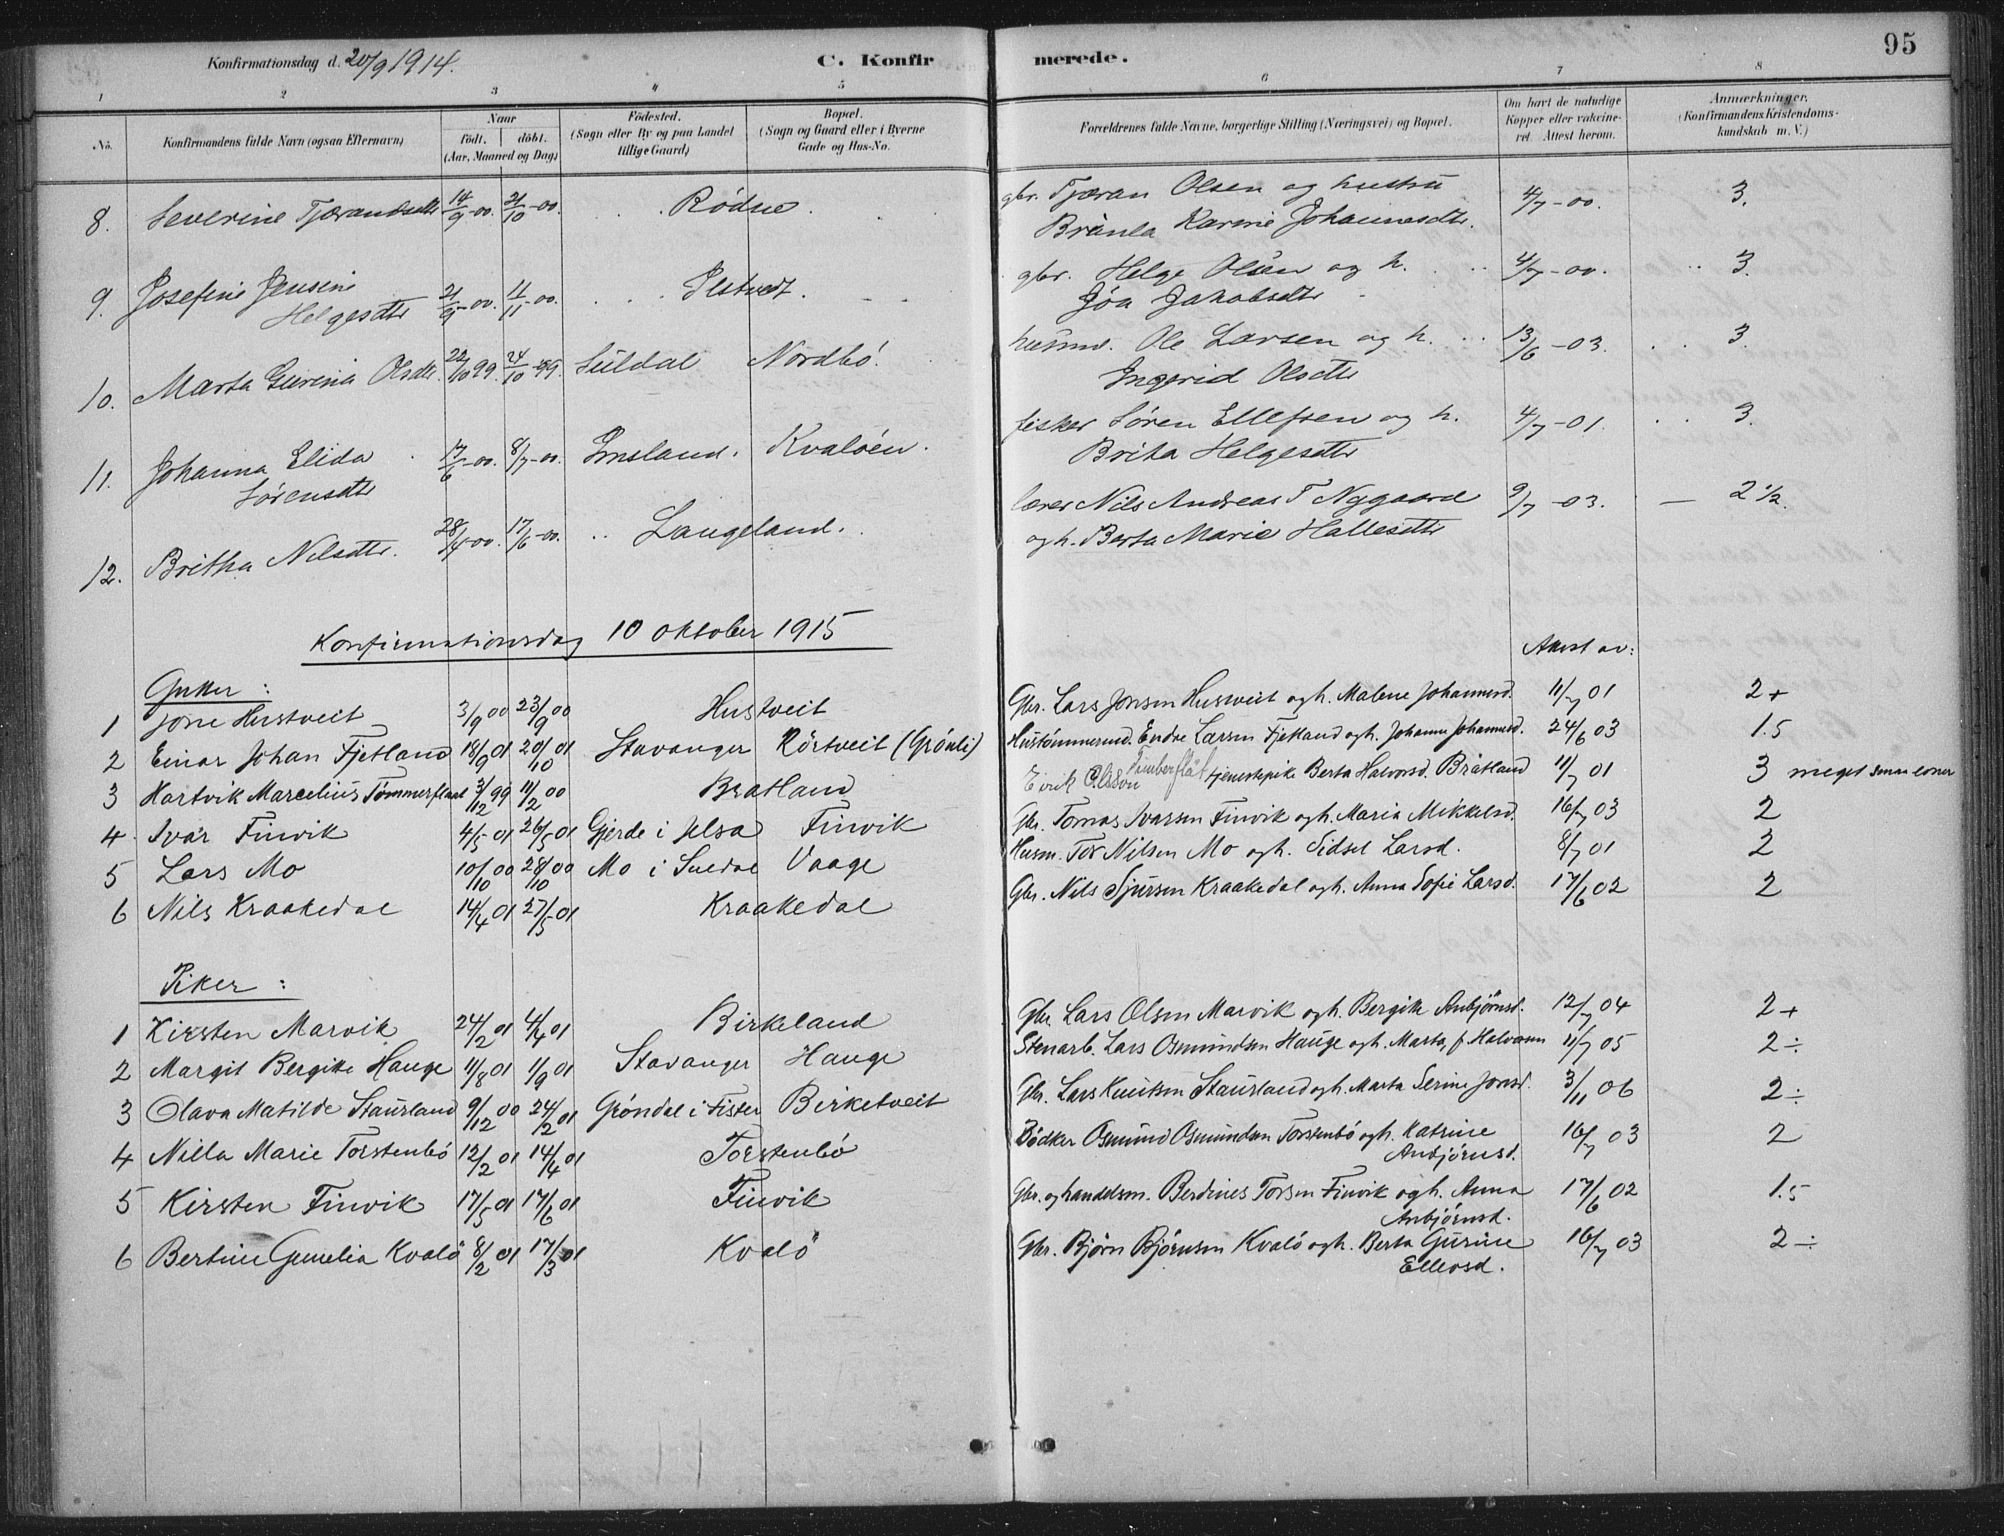 95
Konfirmationsdag d. 20/9 1914. C. Konfirmerede.
1 2 3 4 5 6 7 8
No. Konfirmandens fulde Navn (ogsaa Efternavn) Naar födt. döbt. (Aar, Maaned og Dag) Födested. (Sogn eller By og paa Landet tillige Gaard) Bopæl. (Sogn og Gaard eller i Byerne Gade og Hus-No. Forældrenes fulde Navne, borgerlige Stilling (Næringsvei) og Bopæl. Om havt de naturlige Kopper eller vakcineret. Attest herom. Anmærkninger. (Konfirmandens Kristendomskundskab m. V.)
8. Severine Tjærandsdtr 14/9-00. 21/10-00. . . Rødne . . gbr. Tjæran Olsen og hustru 4/7-00. 3.
Brünla Karine Johannesdtr.
9. Josefine Jensine 21/9-00. 11/11-00. . . Ilstvedt. . . gbr. Helge Olsen og h. 4/7-00. . . 3.
Helgesdtr Jóa Jakobsdtr
10. Marta Gurina Olsdtr. 22/10 99. 24/10-99. Suldal Nordbó. husmd. Ole Larsen og h. 13/6-03. . . 3.
Ingerid Olsdtr
11. Johanna Elida 17/6-00. 8/7-00. Imsland. Kvaløen. fisker Søren Ellefsen og h. 4/7-01. . . 3.
Sørensdtr Brita Helgesdtr
12. Britha Nilsdtr. 28/4-00. 17/6-00. . . Langeland. lærer Nils Andreas T Nygaard 9/7-03. — 2 1/2.
og h. Berta Marie Hallesdtr
Konfirmationsdag 10 oktober 1915
Attest av:
Gutter:
1 Jone Hustveit 3/9 00 23/9 00 Hustveit Gbr. Lars Jonsen Husveit og h. Malene Johannesd. 11/7 01 2+
2 Einar Johan Fjetland 18/9 01 20/10 01 Stavanger Rörtveit (Grónli) Hustómmermd. Endre Larsen Fjetland og h. Johanne Johannesd. 24/6 03 1.5
3 Hartvik Marcelius Tømmerflaat 3/12 99 11/2 00 Bratland Eirik Olsson Timberflåt tjenestepike Berta Halvorsd. Bråtland 11/7 01 3 meget smaa evner
4 Ivar Finvik 4/5 01 26/5 01 Gjerde i Jelsa Finvik Gbr. Tomas Ivarsen Finvik og h. Maria Mikkelsd. 16/7 03 2
5 Lars Mo 10/10 00 28/10 00 Mo i Suldal Vaage Husm. Tor Nilsen Mo og h. Sidsel Larsd. 8/7 01 2
6 Nils Kraakedal 14/4 01 27/5 01 Kraakedal Gbr. Nils Sjursen Kraakedal og h. Anna Sofie Larsd. 17/6 02 2
Piker:
1 Kirsten Marvik 24/2 01 4/4 01 Birkeland Gbr. Lars Olsen Marvik og h. Bergite Anbjörnsd. 12/7 04 2+
2 Margit Bergitte Hauge 11/8 01 1/9 01 Stavanger Hauge Stenarb. Lars Osmundsen Hauge og h. Marta, f. Halvorsen 11/7 05 2÷
3 Olava Matilde Staurland 9/12 00 24/2 01 Gróndal i Fister Birketveit Gbr. Lars Knutsen Staurland og h. Marta Serine Jonsd. 3/11 06 2÷
4 Nilla Marie Torstenbó 12/2 01 14/4 01 Torstenbó Bódker Osmund Osmundsen Torstenbó og h. Katrine 16/7 03 2
Anbjórnsd.
5 Kirsten Finvik 17/5 01 17/6 01 Finvik Gbr. og handelsm. Berdines Torsen Finvik og h. Anna 17/6 02 1.5
Anbjórnsd.
6 Bertine Gunelia Kvaló 8/2 01 17/3 01 Kvaló Gbr. Bjórn Bjórnsen Kvaló og h. Berta Gurine 16/7 03 2÷
Ellevsd.